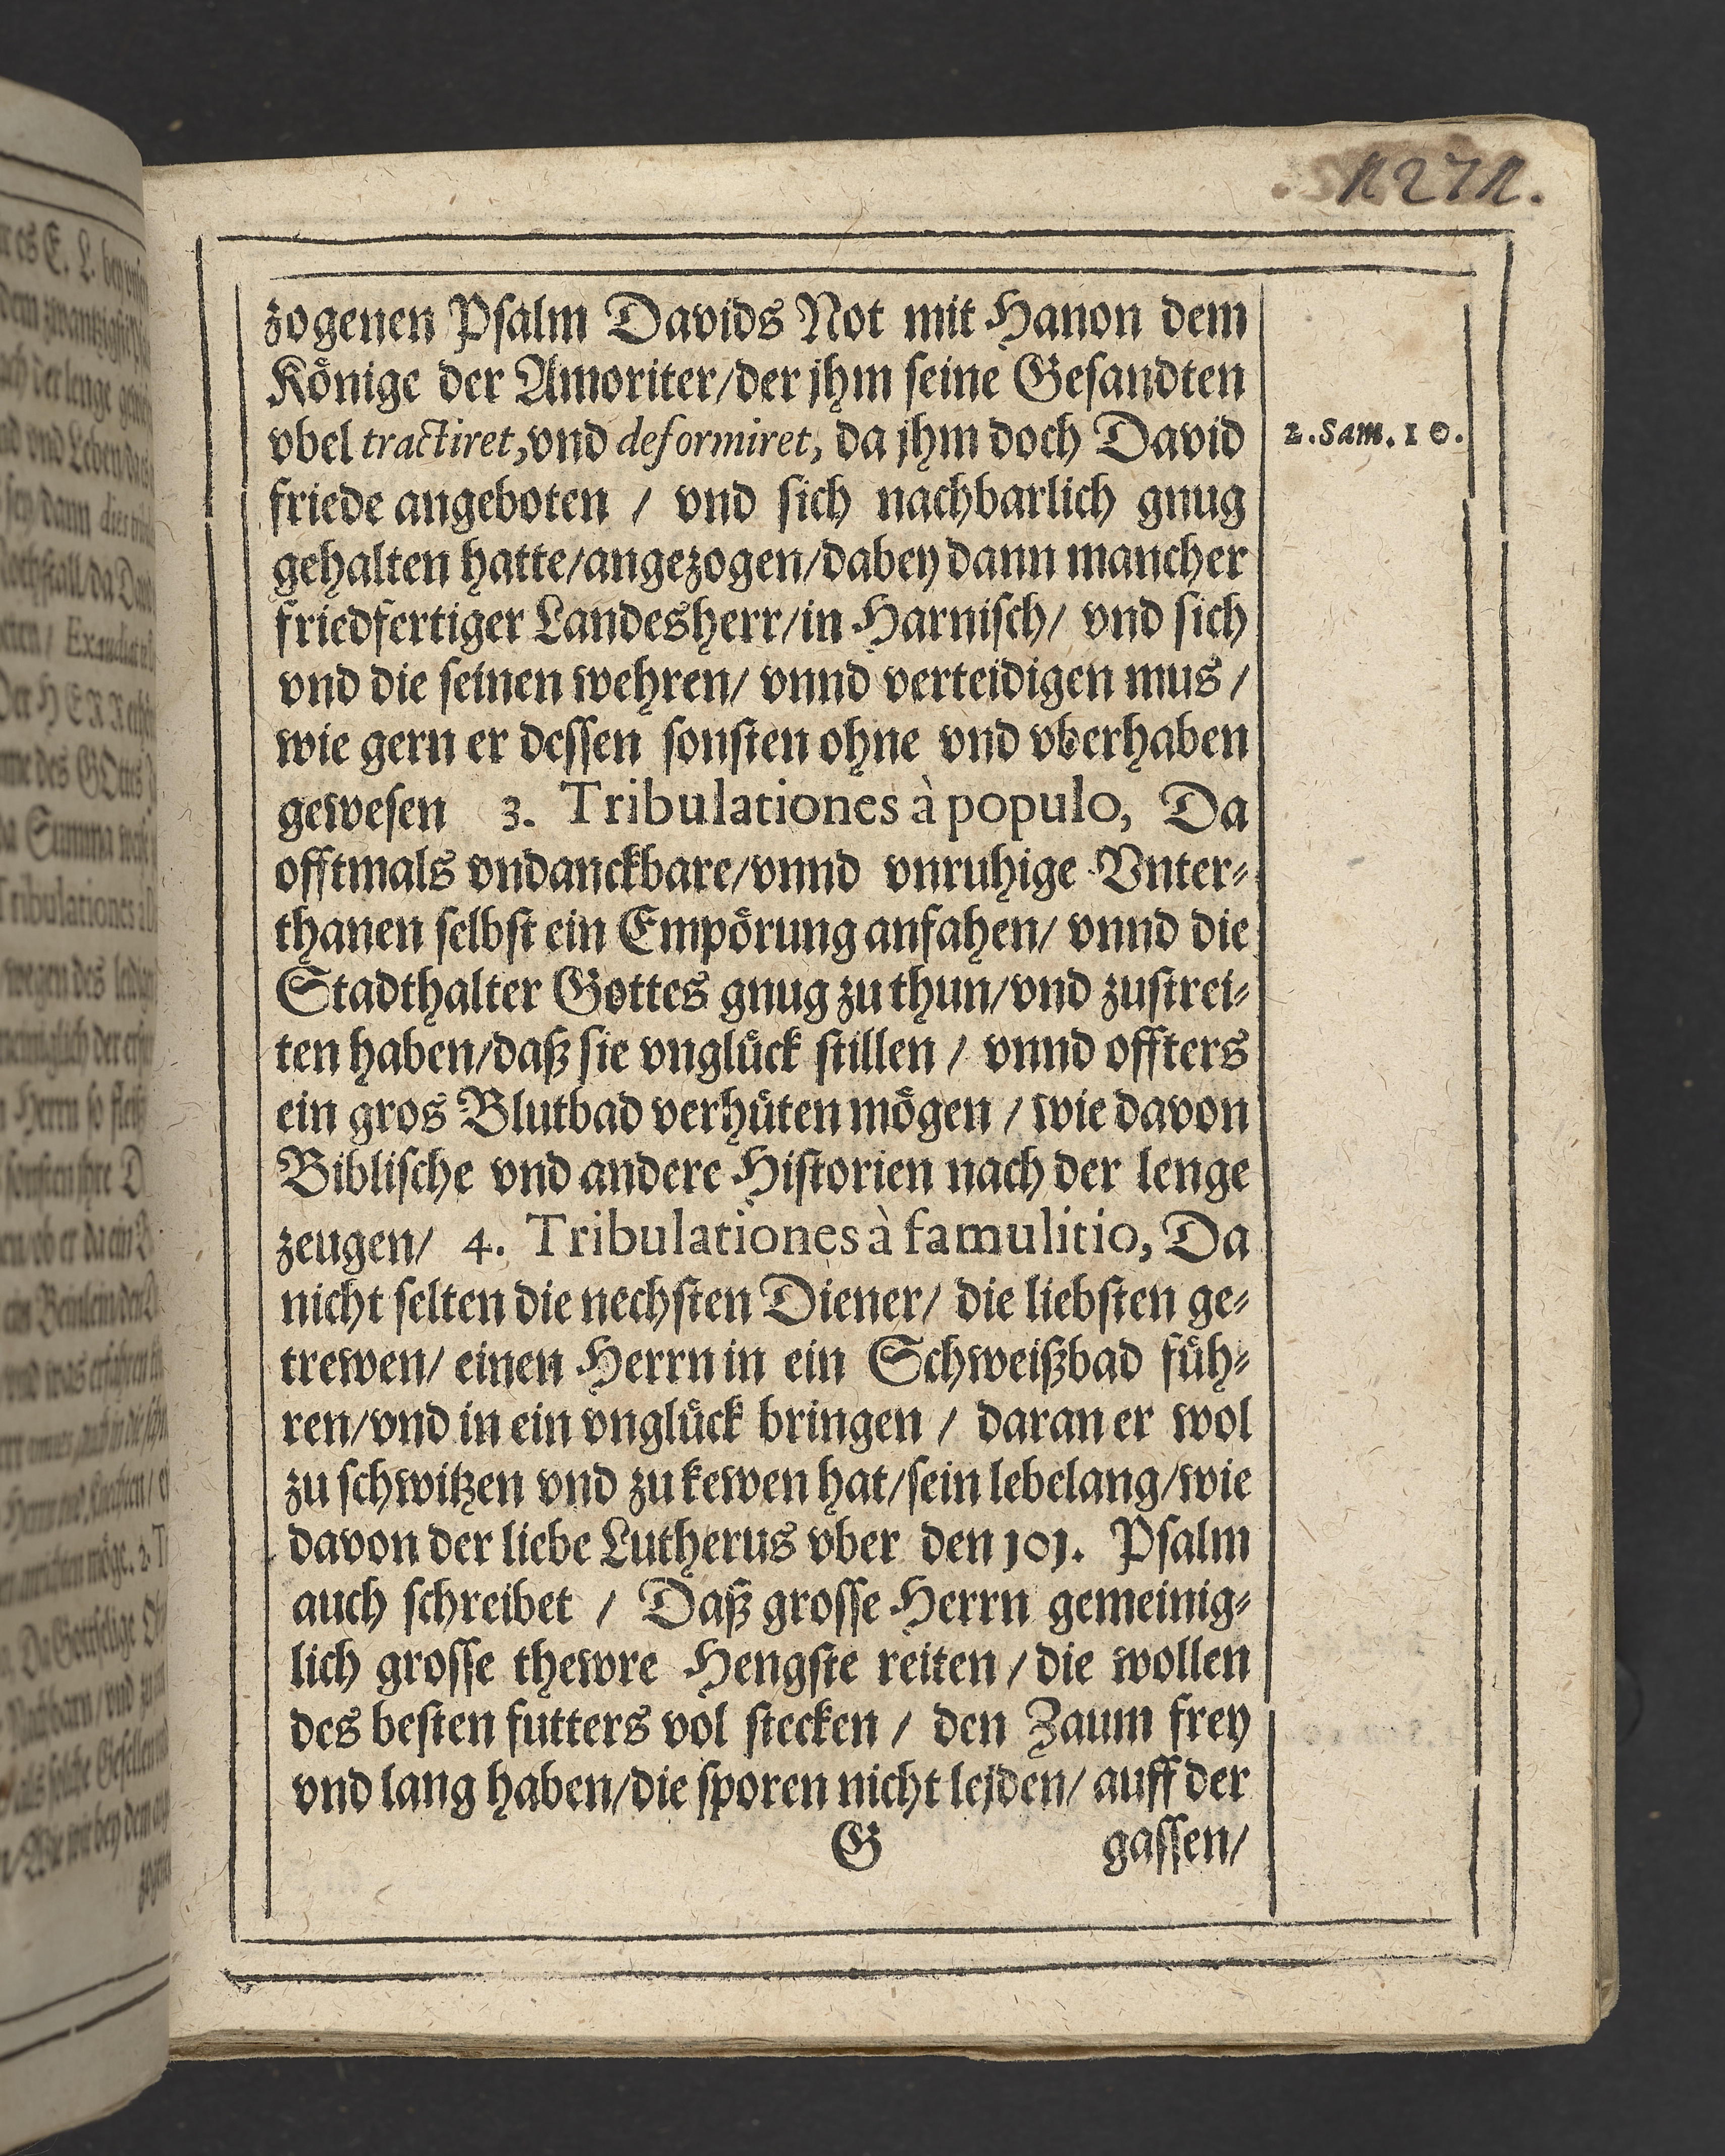 1271.
zogenen Psalm Davids Not mit Hanon dem
Könige der Amoriter/der jhm seine Gesandten
vbel tractiret, vnd deformiret, da jhm doch David
2. Sam. 10.
friede angeboten / vnd sich nachbarlich gnug
gehalten hatte/angezogen/dabey dann mancher
friedfertiger Landesherr/in Harnisch/ vnd sich
vnd die seinen wehren/ vnnd verteidigen mus /
wie gern er dessen sonsten ohne vnd vberhaben
gewesen 3. Tribulationes à populo, Da
offtmals vndanckbare/vnnd vnruhige Vnter-
thanen selbst ein Empörung anfahen/ vnnd die
Stadthalter Gottes gnug zu thun/vnd zustrei-
ten haben/daß sie vnglück stillen / vnnd offters
ein gros Blutbad verhüten mögen / wie davon
Biblische vnd andere Historien nach der lenge
zeugen/ 4. Tribulationes à famulitio, Da
nicht selten die nechsten Diener/ die liebsten ge-
trewen/ einen Herrn in ein Schweißbad füh-
ren/vnd in ein vnglück bringen / daran er wol
zu schwitzen vnd zu kewen hat/sein lebelang/wie
davon der liebe Lutherus vber den 101. Psalm
auch schreibet / Daß grosse Herrn gemeinig-
lich grosse thewre Hengste reiten / die wollen
des besten futters vol stecken / den Zaum frey
vnd lang haben/die sporen nicht lejden/ auff der
G gassen/